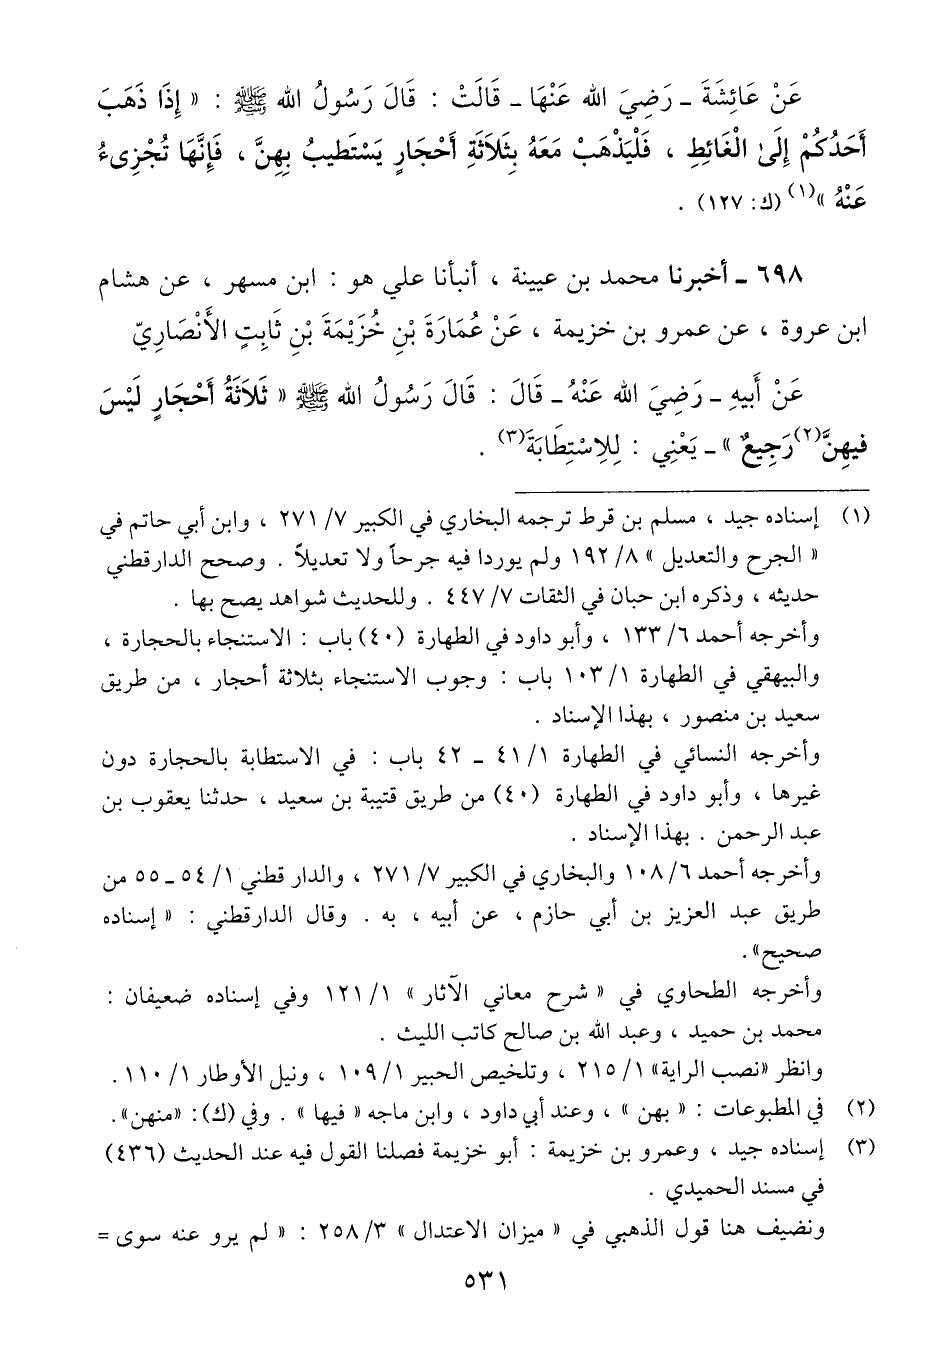 عَنْ عَائِشَةَ ـ رَضِيَ الله عَنْهَا ـ قَالَتْ : قَالَ رَسُولُ الله ﷺ : « إِذَا ذَهَبَ
أَحَدُكُمْ إِلَىٰ الْغَائِطِ ، فَلْيَذْهَبْ مَعَهُ بِثَلاَثَةِ أَحْجَارٍ يَسْتَطِيبُ بِهِنَّ ، فَإِنَّهَا تُجْزِىءُ
عَنْهُ »(١) (ك: ١٢٧) .
٦٩٨ ـ أخبرنا محمد بن عيينة ، أنبأنا علي هو : ابن مسهر ، عن هشام
ابن عروة ، عن عمرو بن خزيمة ، عَنْ عُمَارَةَ بْنِ خُزَيْمَةَ بْنِ ثَابِتٍ الأَنْصَارِيِّ
عَنْ أَبِيهِ ـ رَضِيَ الله عَنْهُ ـ قَالَ : قَالَ رَسُولُ الله ﷺ « ثَلاَثَةُ أَحْجَارٍ لَيْسَ
فيهِنَّ(٢) رَجِيعٌ » ـ يَعْنِي : لِلاِسْتِطَابَةَ(٣) .
(١) إسناده جيد ، مسلم بن قرط ترجمه البخاري في الكبير ٧/ ٢٧١ ، وابن أبي حاتم في
« الجرح والتعديل » ٨/ ١٩٢ ولم يوردا فيه جرحاً ولا تعديلاً . وصحح الدارقطني
حديثه ، وذكره ابن حبان في الثقات ٧/ ٤٤٧ . وللحديث شواهد يصح بها .
وأخرجه أحمد ٦/ ١٣٣ ، وأبو داود في الطهارة (٤٠) باب : الاستنجاء بالحجارة ،
والبيهقي في الطهارة ١/ ١٠٣ باب : وجوب الاستنجاء بثلاثة أحجار ، من طريق
سعيد بن منصور ، بهذا الإسناد .
وأخرجه النسائي في الطهارة ١/ ٤١ ـ ٤٢ باب : في الاستطابة بالحجارة دون
غيرها ، وأبو داود في الطهارة (٤٠) من طريق قتيبة بن سعيد ، حدثنا يعقوب بن
عبد الرحمن . بهذا الإسناد .
وأخرجه أحمد ٦/ ١٠٨ والبخاري في الكبير ٧/ ٢٧١ ، والدار قطني ١/ ٥٤ ـ ٥٥ من
طريق عبد العزيز بن أبي حازم ، عن أبيه ، به . وقال الدارقطني : « إسناده
صحيح».
وأخرجه الطحاوي في « شرح معاني الآثار » ١/ ١٢١ وفي إسناده ضعيفان :
محمد بن حميد ، وعبد الله بن صالح كاتب الليث .
وانظر «نصب الراية» ١/ ٢١٥ ، وتلخيص الحبير ١/ ١٠٩ ، ونيل الأوطار ١/ ١١٠ .
(٢) في المطبوعات : « بهن » ، وعند أبي داود ، وابن ماجه « فيها » . وفي (ك): «منهن».
(٣) إسناده جيد ، وعمرو بن خزيمة : أبو خزيمة فصلنا القول فيه عند الحديث (٤٣٦)
في مسند الحميدي .
ونضيف هنا قول الذهبي في « ميزان الاعتدال » ٣/ ٢٥٨ : « لم يرو عنه سوى =
٥٣١